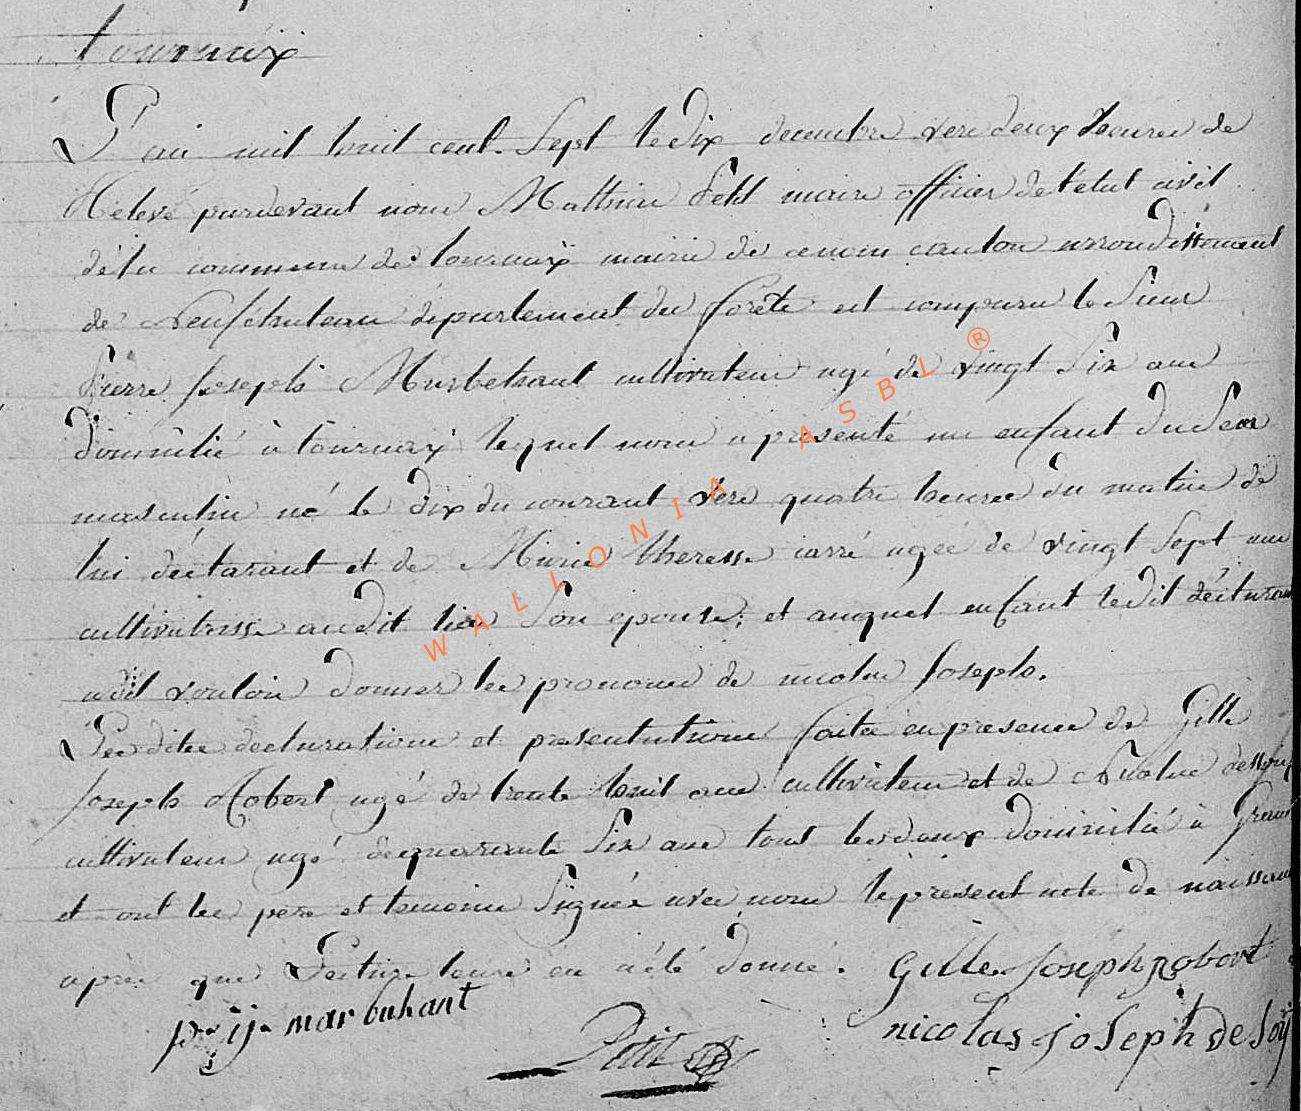 tournaÿ
L'an mil huit cent Sept le dix decembre vere deux heures de
Relevé pardevant nous Mathieu Petit maire officier de l'etat civil
de la commune de tournaÿ mairie de ce nom canton arrondissement
de Neufchateau département du forete est comparu le Sieur
Pierre Joseph Marbehant cultivateur agé de vingt Six ans
domicilié à tournaÿ lequel nous a présenté un enfant du Sexe
masculin né le dix du courant vere quatre heures du matin de
lui déclarant et de Marie theresse carré agée de vingt Sept ans
cultivatrisse audit lieu Son epouse; et auquel enfant ledit déclarant
a dit vouloir donner les pronoms de nicolas Joseph.
Les dites declarations et presentations faite en presence de Gille
Joseph Robert agé de trente huit ans cultivateur et de Nicolas
cultivateur agé de quarrante Six ans tous les deux domicilié à
et ont les pere et temoins Signés avec nous le présent acte de naissance
après que Lecture leure en a été donné. Gille Joseph Robert
p: ÿ: marbuhant
Petit
nicolas joseph de Soÿ
WALLONIA ASBL ®